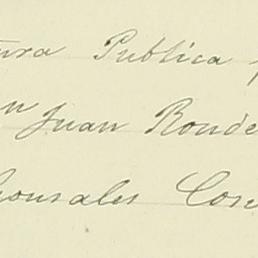 tura Publica
n Juan Ronde
Gonsales Con